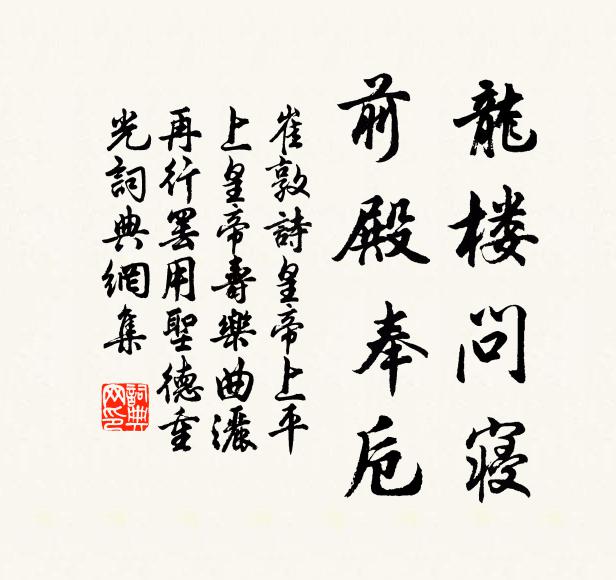 龍楼問寝
前殿奉卮
崔敦詩皇帝上平
上皇帝壽樂曲灑
再行罢用聖德重
光詞典網集
詞典
网印